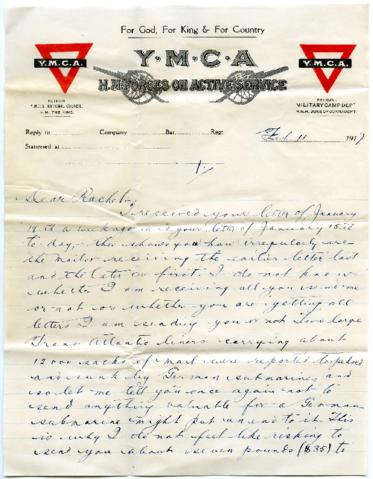 For God, For King & For Country
Y.M.C.A
Y.M.C.A.
Y.M.C.A.
H.M. FORCES ON ACTIVE SERVICE
PATRON
Y.M.C.A. NATIONAL COUNCIL
H.M. THE KING.
PATRON
MILITARY CAMP DEPT
Reply to Company Bat. Regt.
Feb 11 1917
Stationed at
Dear Rachel:-
I received your letter of January
a week ago and your letter of January 15th
to-day, this shows you how irregularly are
the mails receiving the earlier letter last
and the later on first. I do not know
whether I am receiving all you send me
or not or whether you are getting all
letters I am sending you or not. Two large
Trans Atlantic liners carrying about
12000 sacks of mail were reported
and sunk by German submarines and
so let me tell you once again not to
send anything valuable for a German
submarine might put an end to it. This
is why I do not feel like risking to
send you about seven pounds ($35) to